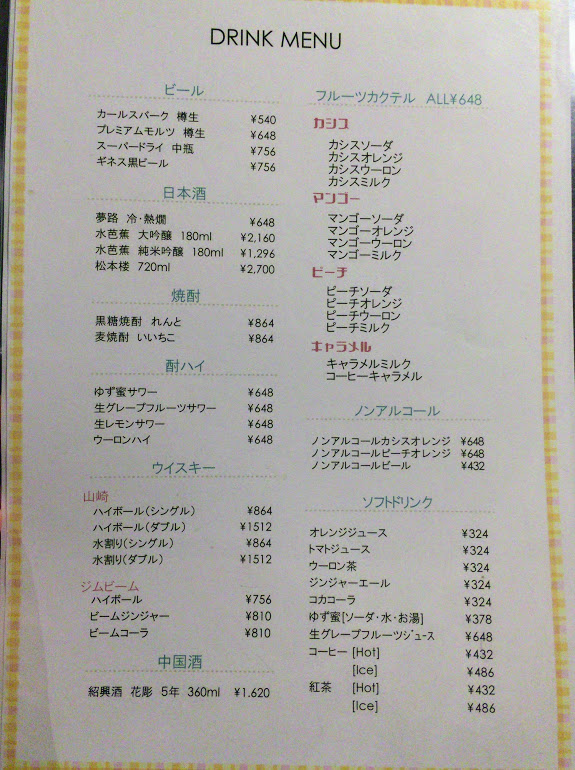 DRINK MENU
ビール
カールスパーク 樽生 ¥540
プレミアムモルツ 樽生 ¥648
スーパードライ 中瓶 ¥756
ギネス黒ビール ¥756
日本酒
夢路 冷・熱燗 ¥648
水芭蕉 大吟醸 180ml ¥2,160
水芭蕉 純米吟醸 180ml ¥1,296
松本楼 720ml ¥2,700
焼酎
黒糖焼酎 れんと ¥864
麦焼酎 いいちこ ¥864
酎ハイ
ゆず蜜サワー ¥648
生グレープフルーツサワー ¥648
生レモンサワー ¥648
ウーロンハイ ¥648
ウイスキー
山崎
ハイボール(シングル) ¥864
ハイボール(ダブル) ¥1512
水割り(シングル) ¥864
水割り(ダブル) ¥1512
ジムビーム
ハイボール ¥756
ビームジンジャー ¥810
ビームコーラ ¥810
中国酒
紹興酒 花彫 5年 360ml ¥1.620
フルーツカクテル ALL¥648
カシス
カシスソーダ
カシスオレンジ
カシスウーロン
カシスミルク
マンゴー
マンゴーソーダ
マンゴーオレンジ
マンゴーウーロン
マンゴーミルク
ピーチ
ピーチソーダ
ピーチオレンジ
ピーチウーロン
ピーチミルク
キャラメル
キャラメルミルク
コーヒーキャラメル
ノンアルコール
ノンアルコールカシスオレンジ ¥648
ノンアルコールピーチオレンジ ¥648
ノンアルコールビール ¥432
ソフトドリンク
オレンジジュース ¥324
トマトジュース ¥324
ウーロン茶 ¥324
ジンジャーエール ¥324
コカコーラ ¥324
ゆず蜜[ソーダ・水・お湯] ¥378
生グレープフルーツジュース ¥648
コーヒー [Hot] ¥432
[Ice] ¥486
紅茶 [Hot] ¥432
[Ice] ¥486